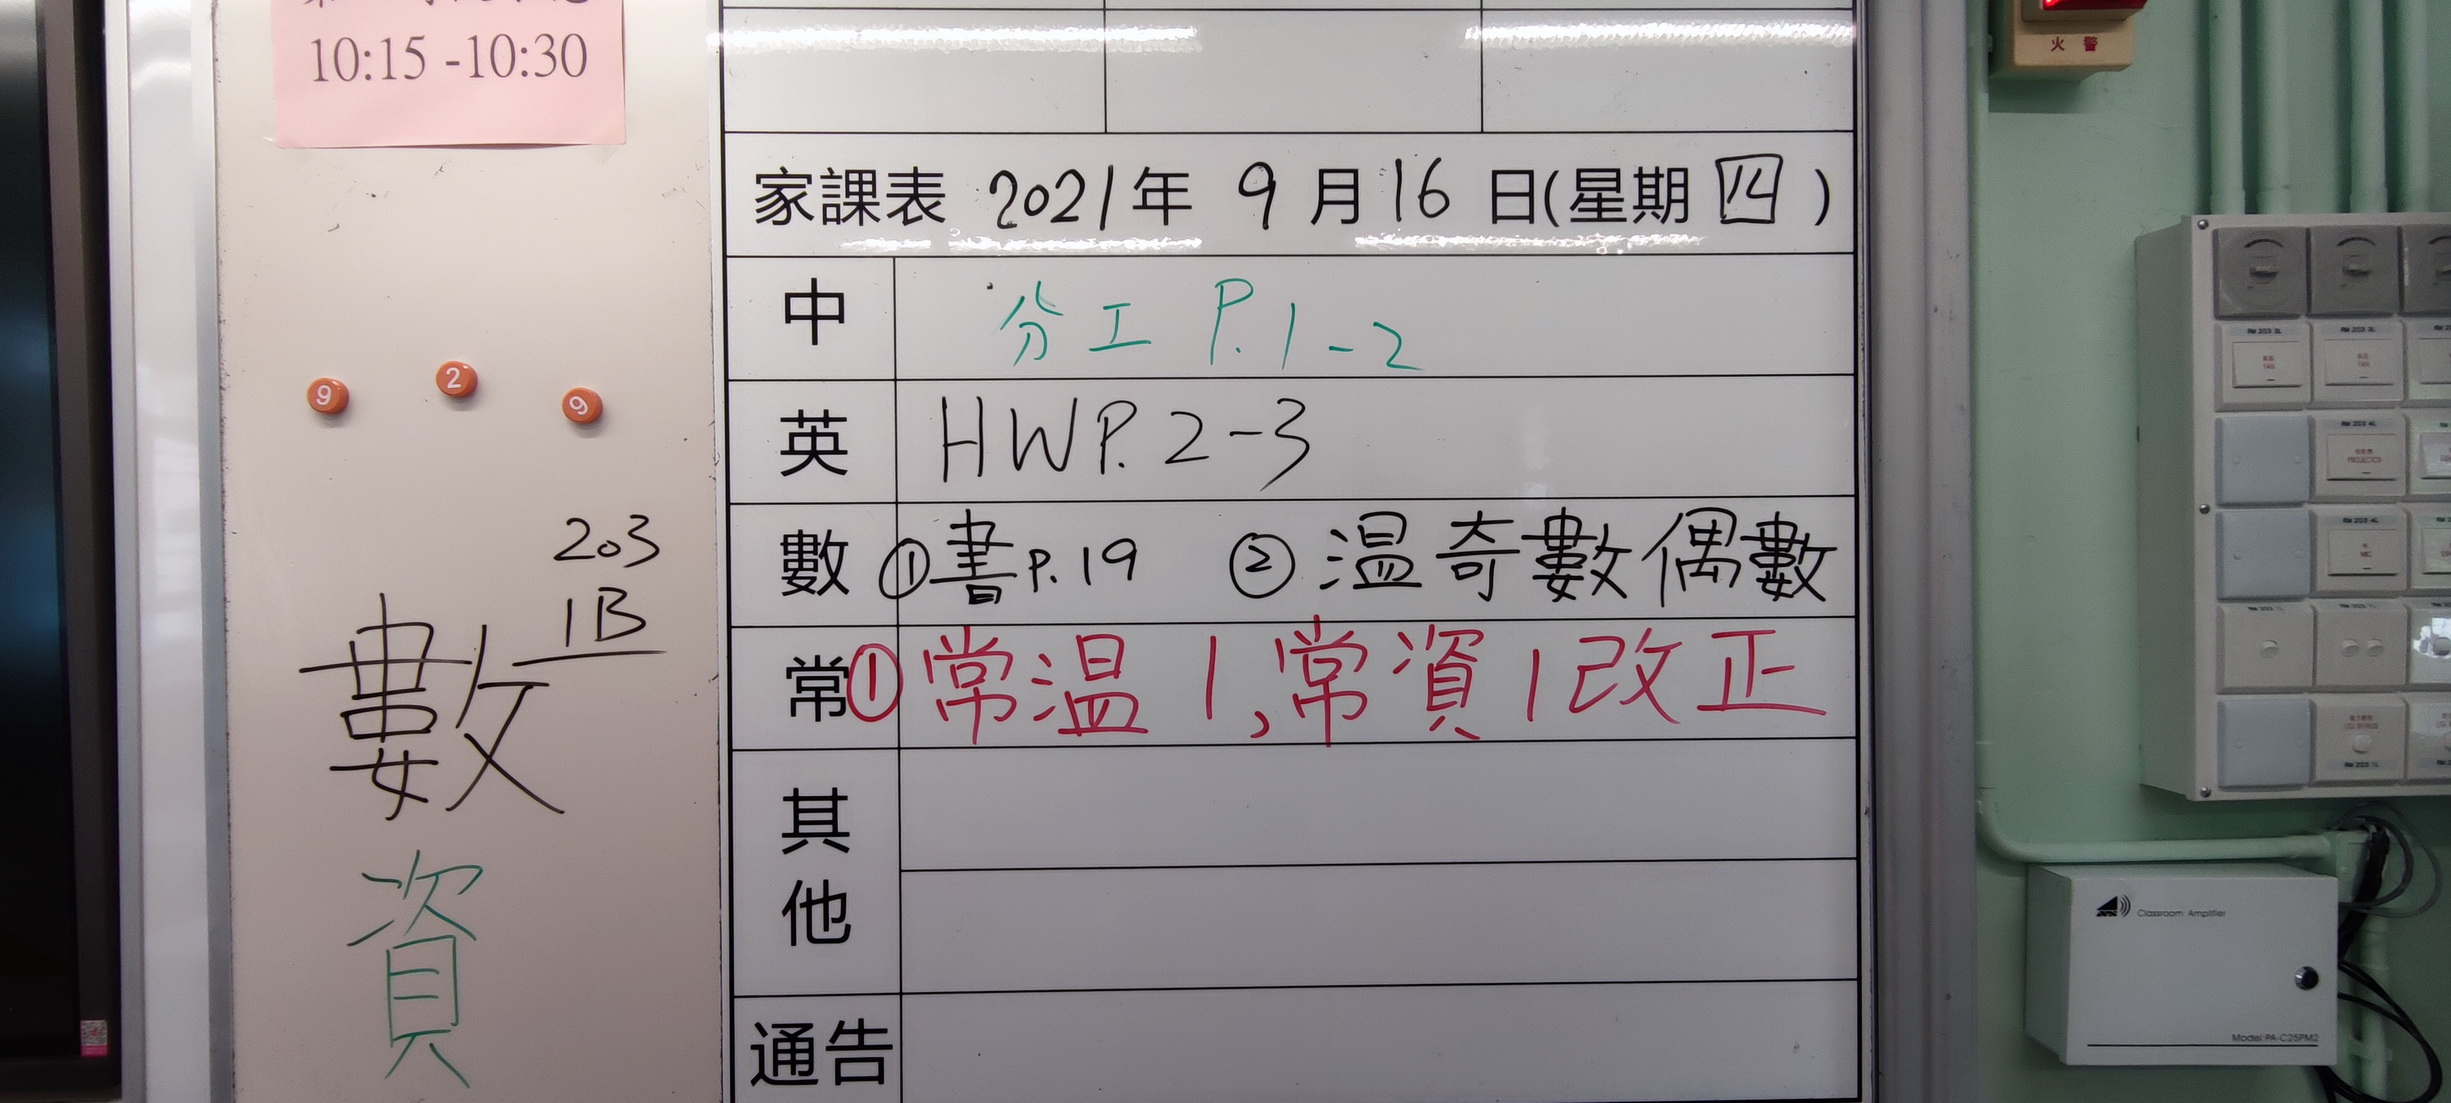 10:15 -10:30
火 警
家課表 2021年 9月16日(星期四)
中 分工 P.1-2
英 HW P.2-3
數 ①書p.19 ②溫奇數偶數
常 ①常溫1,常資1改正
其他
通告
9 2 9
203
1B
數
資
Classroom Amplifier
Model:PA-C25PM2